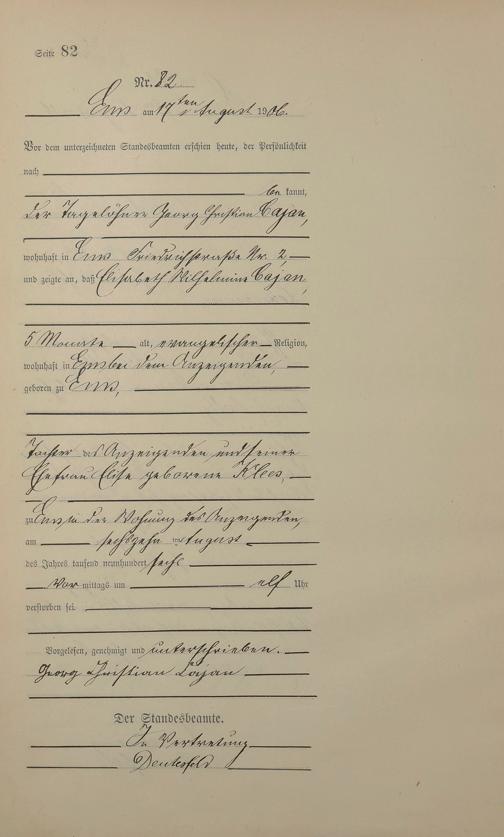 Seite 82
Nr. 82
Ems am 17ten August 1906.
Vor dem unterzeichneten Standesbeamten erschien heute, der Persönlichkeit
nach
be kannt,
der Tagelöhner Georg Christian Cajan,
wohnhaft in Ems Friedrichstraße Nr. 2,
und zeigte an, daß Elisabeth Wilhelmine Cajan,
5 Monate alt, evangelischer Religion,
wohnhaft in Ems bei dem Anzeigenden,
geboren zu Ems,
Tochter des Anzeigenden und seiner
Ehefrau Elise geborene Klees,
zu Ems in der Wohnung des Anzeigenden
am sechszehn ten August
des Jahres tausend neunhundert sechs
Vor mittags um elf Uhr
verstorben sei.
Vorgelesen, genehmigt und unterschrieben.
Georg Christian Cajan
Der Standesbeamte.
In Vertretung